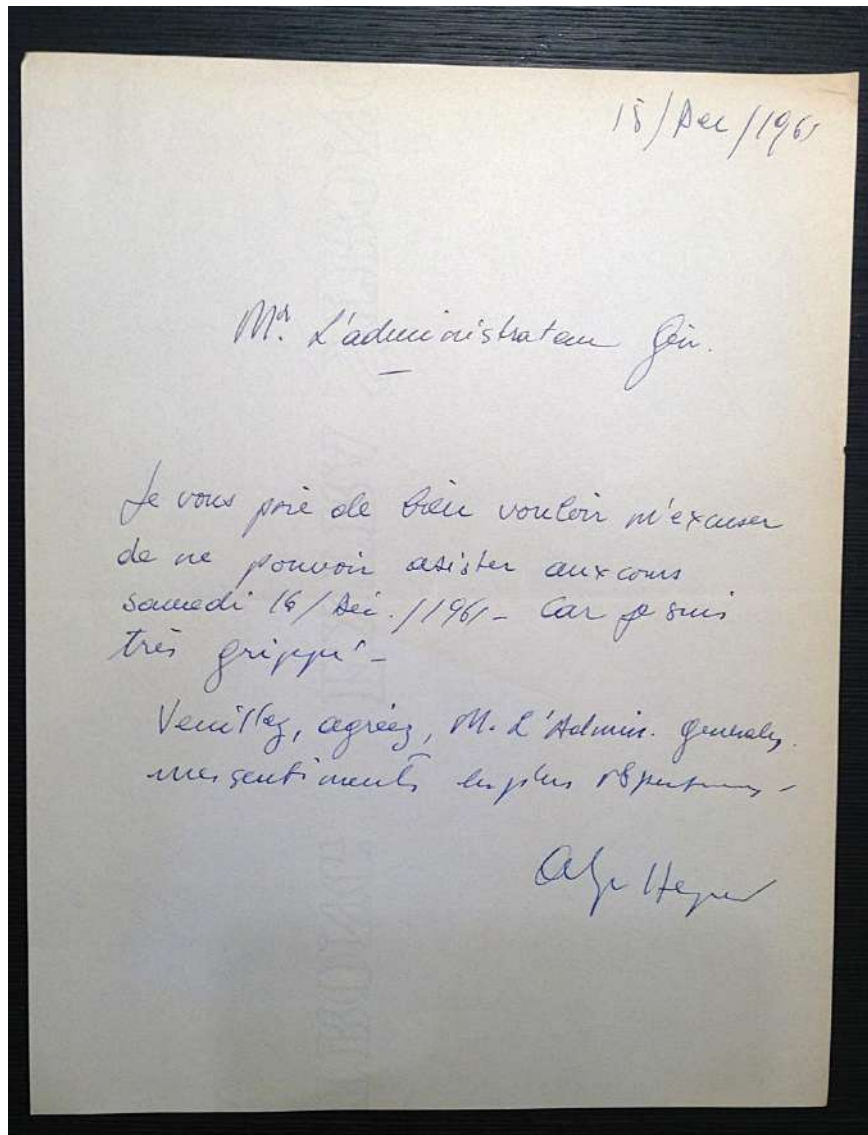 15/Dec/1961
Mr. L'administrateur Gén.
Je vous prie de bien vouloir m'excuser
de ne pouvoir asister aux cours
samedi 16/Déc./1961 - Car je suis
très grippé -
Veuillez, agréez, M. L'Admin. generales,
mes sentiments les plus